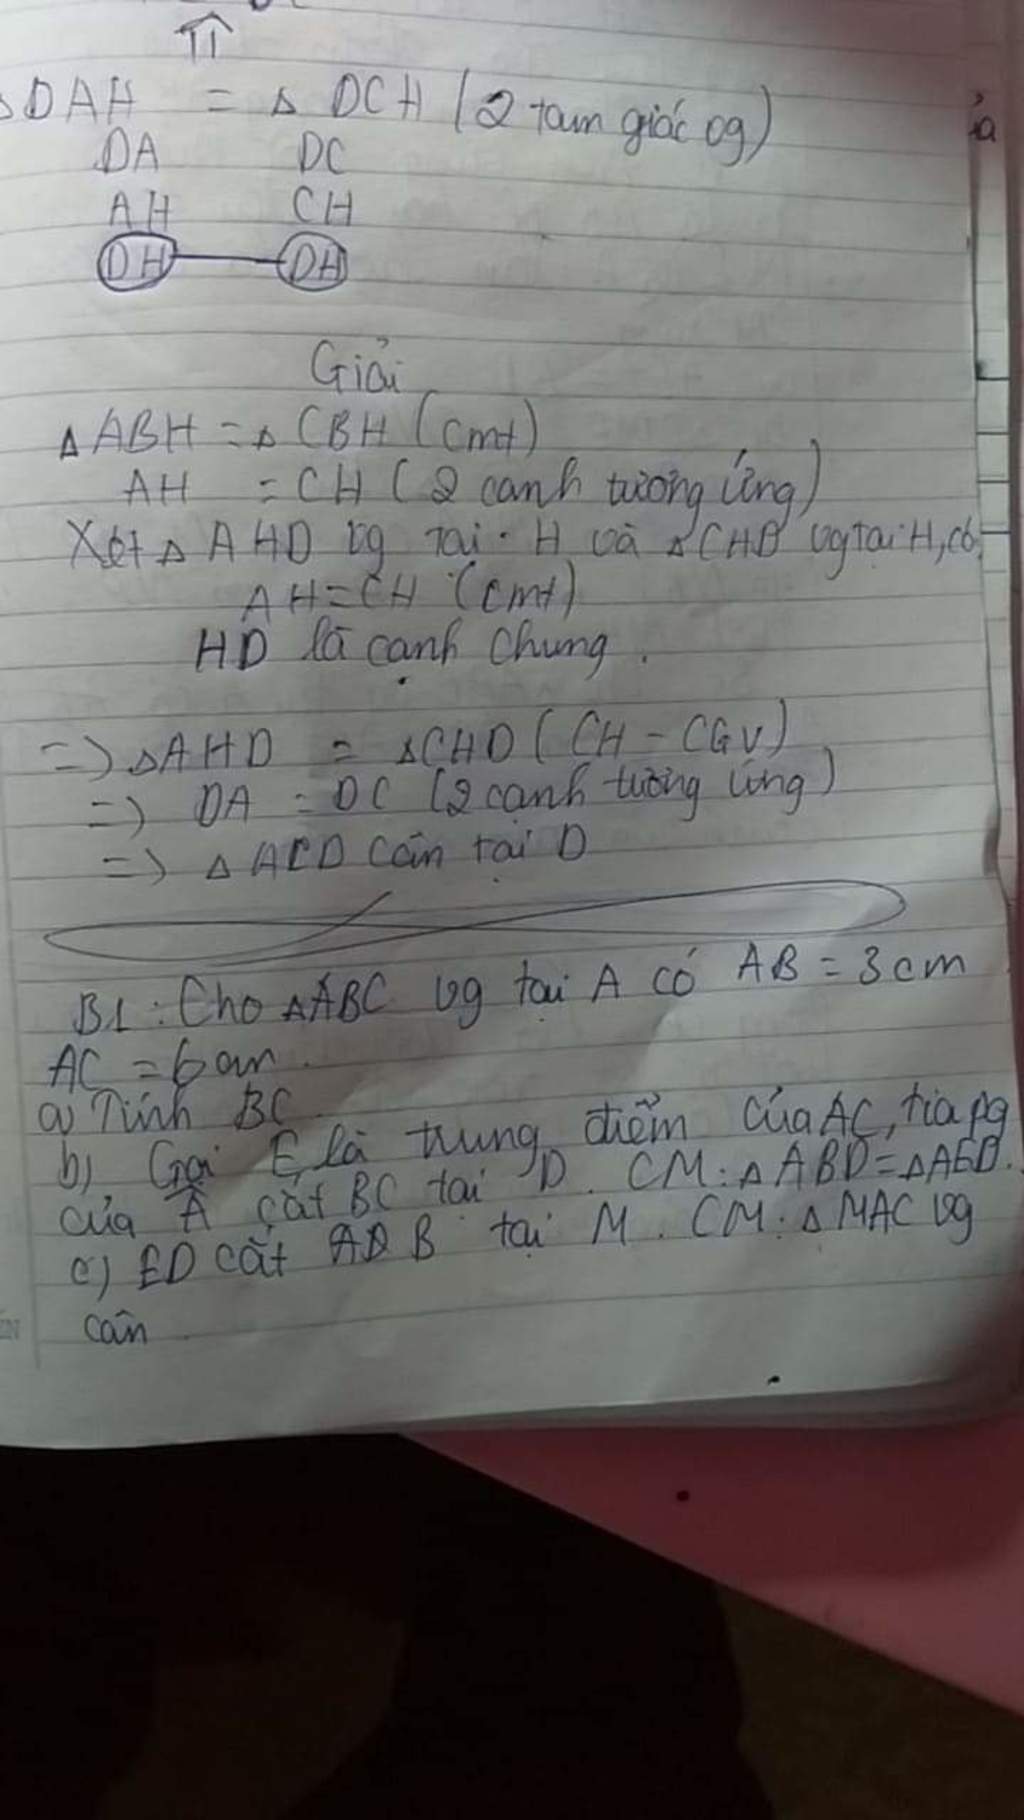 ΔDAH = Δ DCH (2 tam giác vg)
DA DC
AH CH
DH DH
Giải
Δ ABH = Δ CBH (cmt)
AH = CH (2 cạnh tương ứng)
Xét Δ AHD vg tại H và Δ CHD vg tại H, có
AH = CH (cmt)
HD là cạnh chung.
=> ΔAHD = ΔCHD (CH - CGV)
=> DA = DC (2 cạnh tương ứng)
=> Δ ACD cân tại D
B1: Cho ΔABC vg tại A có AB = 3cm
AC = 6cm.
a) Tính BC
b) Gọi E là trung điểm của AC, tia pg
của Â cắt BC tại D. CM: Δ ABD = ΔAED.
c) ED cắt AB tại M. CM: Δ MAC vg
cân